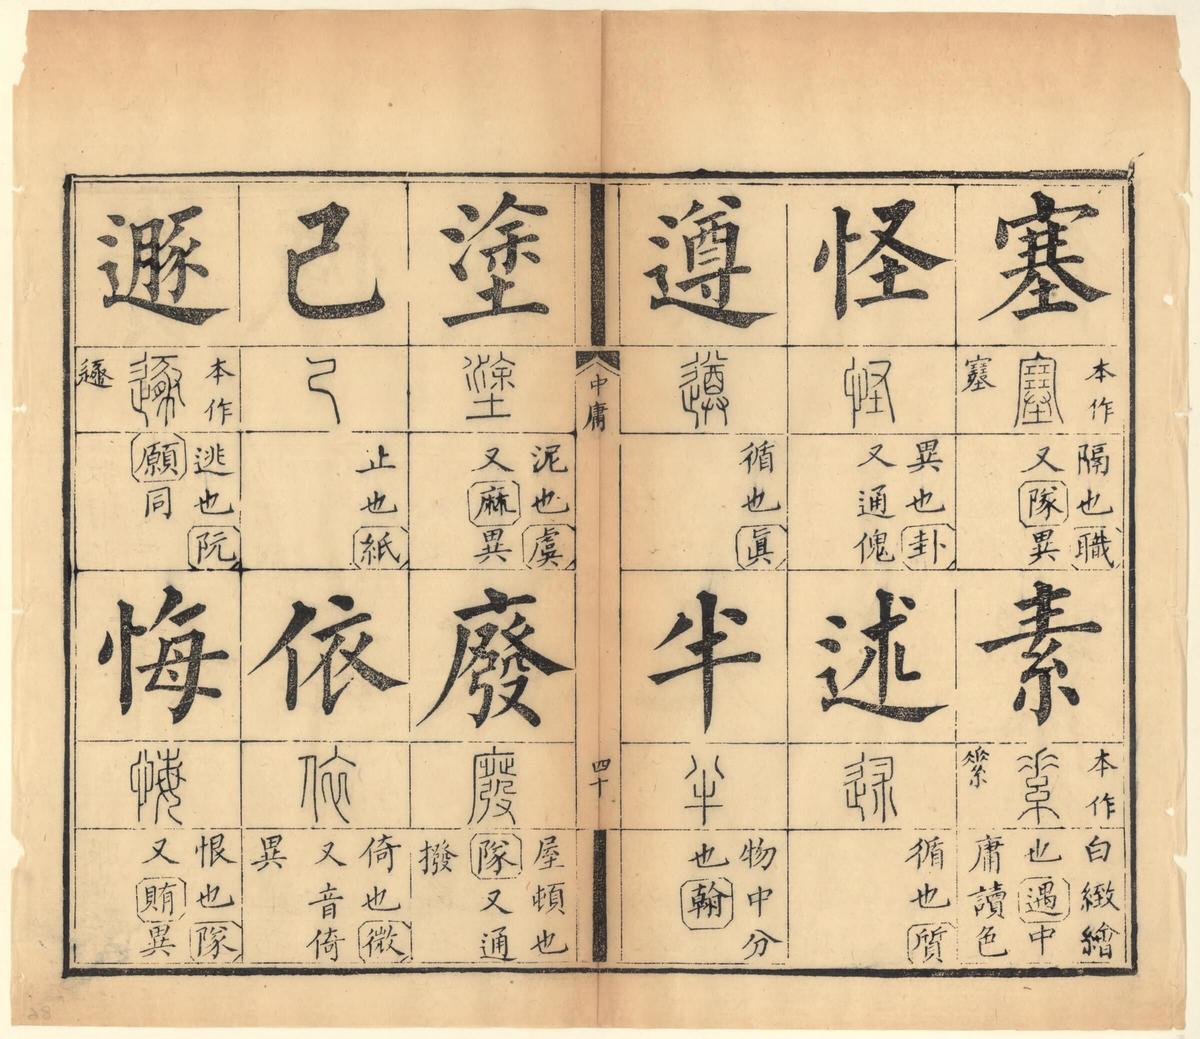 塞
本作
塞
隔也職
又隊異
素
本作
素
白緻繒
也遇中
庸讀色
怪
怪
異也卦
又通傀
述
述
循也質
遵
遵
循也眞
半
半
物中分
也翰
中庸
四十
塗
塗
泥也虞
又麻異
廢
廢
屋頓也
隊又通
撥
已
已
止也紙
依
依
倚也微
又音倚
異
遯
本作
遯
逃也阮
願同
悔
悔
恨也隊
又賄異